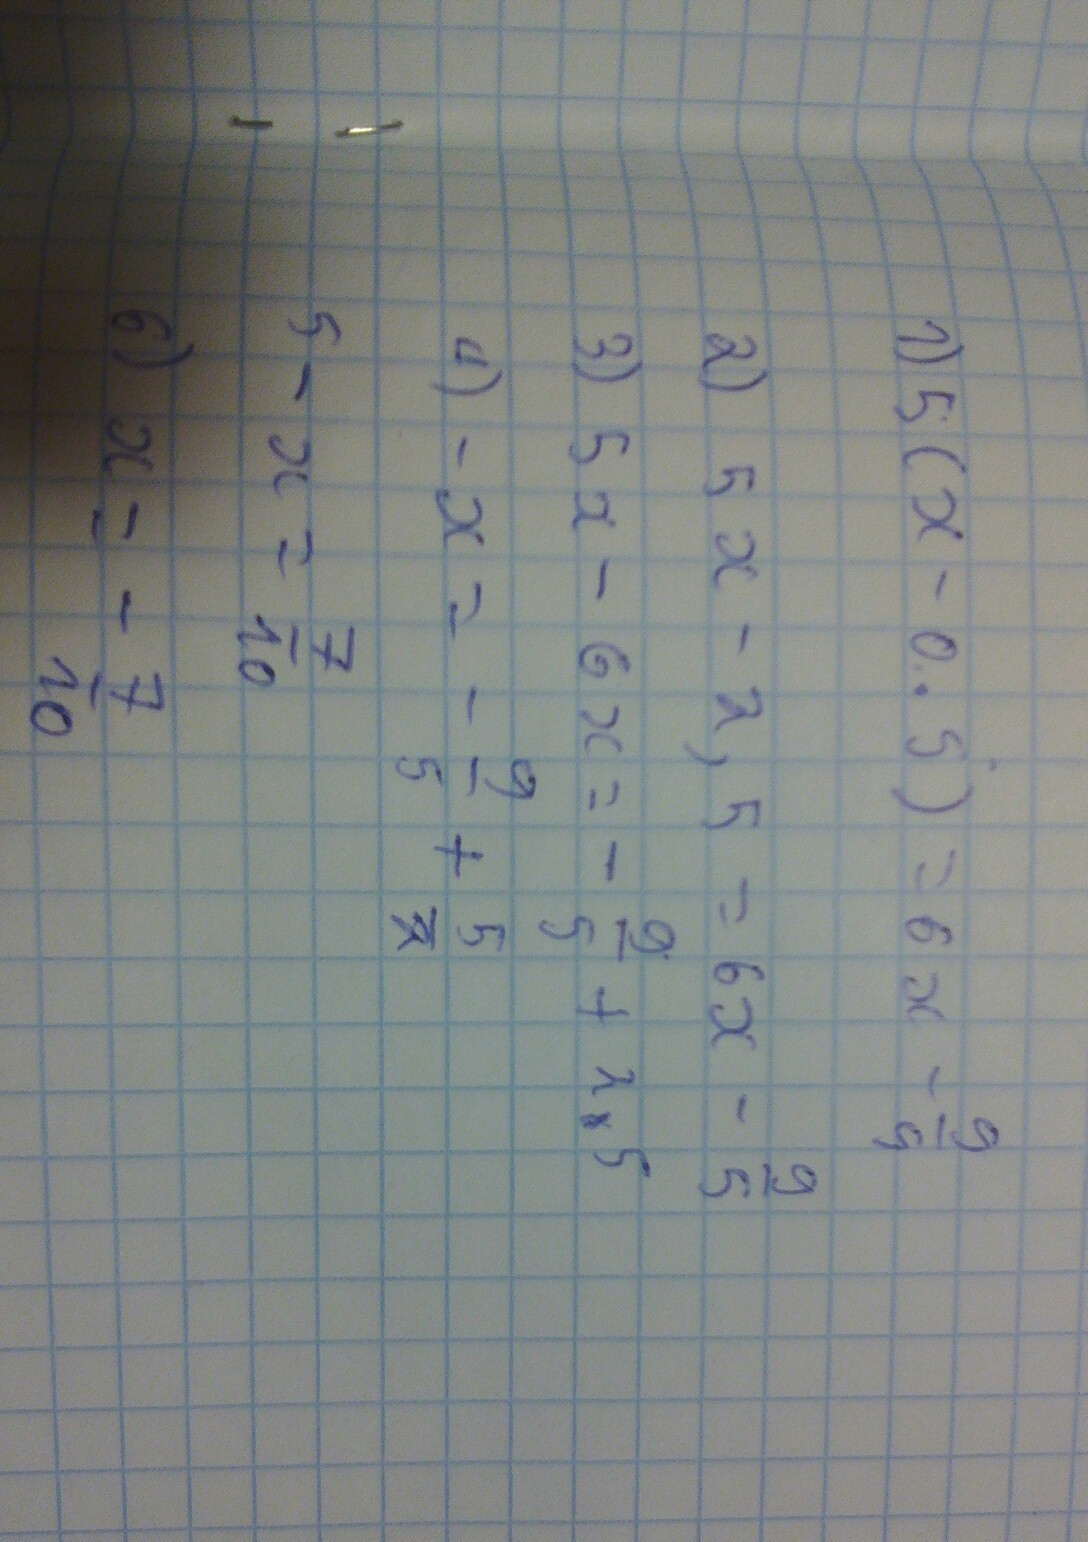 1) 5(x - 0.5) = 6x - 9/5
2) 5x - 2,5 = 6x - 9/5
3) 5x - 6x = - 9/5 + 2,5
4) -x = - 9/5 + 5/2
5 - x = 7/10
6) x = - 7/10